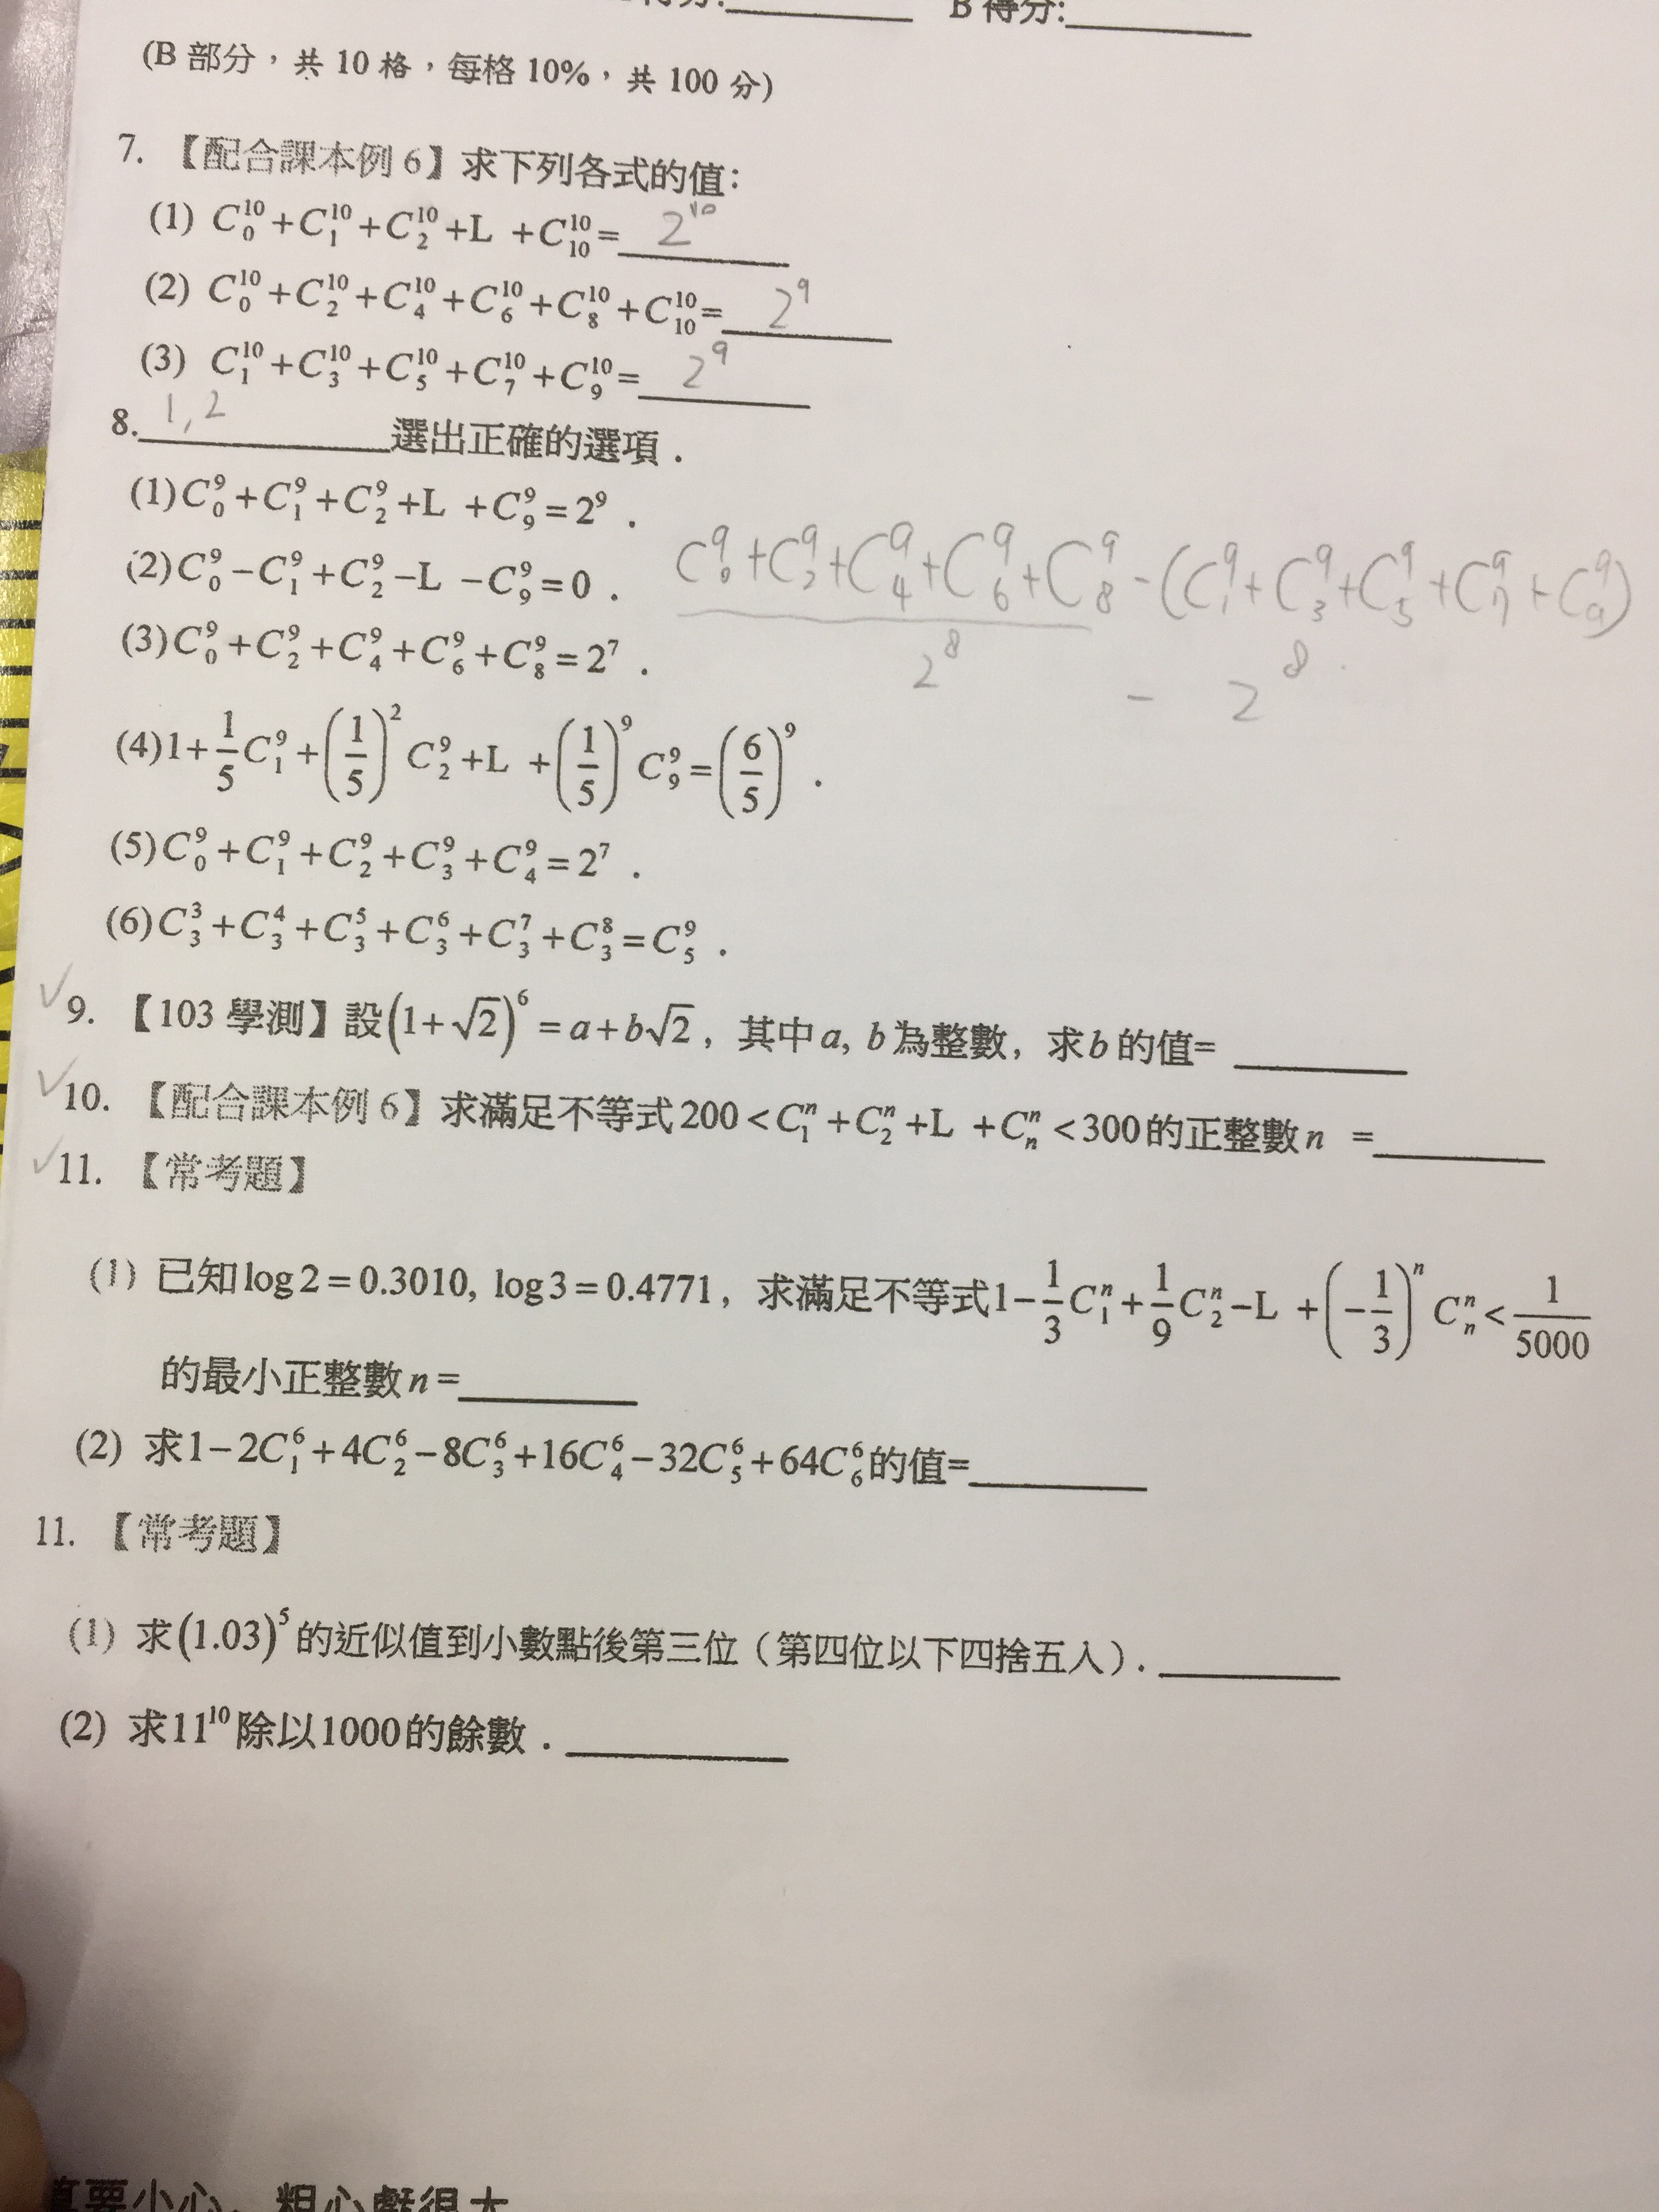 B 得分:
(B 部分，共 10 格，每格 10%，共 100 分)
7. 【配合課本例 6】求下列各式的值：
(1) C₀¹⁰+C₁¹⁰+C₂¹⁰+L +C₁₀¹⁰= 2¹⁰
(2) C₀¹⁰+C₂¹⁰+C₄¹⁰+C₆¹⁰+C₈¹⁰+C₁₀¹⁰= 2⁹
(3) C₁¹⁰+C₃¹⁰+C₅¹⁰+C₇¹⁰+C₉¹⁰= 2⁹
8. 1,2 選出正確的選項．
(1)C₀⁹+C₁⁹+C₂⁹+L +C₉⁹=2⁹．
(2)C₀⁹−C₁⁹+C₂⁹−L −C₉⁹=0．
C₀⁹+C₂⁹+C₄⁹+C₆⁹+C₈⁹−(C₁⁹+C₃⁹+C₅⁹+C₇⁹+C₉⁹)
(3)C₀⁹+C₂⁹+C₄⁹+C₆⁹+C₈⁹=2⁷．
2⁸ − 2⁸
(4)1+1/5 C₁⁹+(1/5)²C₂⁹+L +(1/5)⁹C₉⁹=(6/5)⁹．
(5)C₀⁹+C₁⁹+C₂⁹+C₃⁹+C₄⁹=2⁷．
(6)C₃³+C₃⁴+C₃⁵+C₃⁶+C₃⁷+C₃⁸=C₅⁹．
9. 【103 學測】設(1+√2)⁶=a+b√2，其中a, b為整數，求b的值=
10. 【配合課本例 6】求滿足不等式200<C₁ⁿ+C₂ⁿ+L +Cₙⁿ<300的正整數n =
11. 【常考題】
(1) 已知log2=0.3010, log3=0.4771，求滿足不等式1−1/3 C₁ⁿ+1/9 C₂ⁿ−L +(−1/3)ⁿCₙⁿ<1/5000
的最小正整數n=
(2) 求1−2C₁⁶+4C₂⁶−8C₃⁶+16C₄⁶−32C₅⁶+64C₆⁶的值=
11. 【常考題】
(1) 求(1.03)⁵的近似值到小數點後第三位（第四位以下四捨五入）．
(2) 求11¹⁰除以1000的餘數．
要小心，粗心虧很大